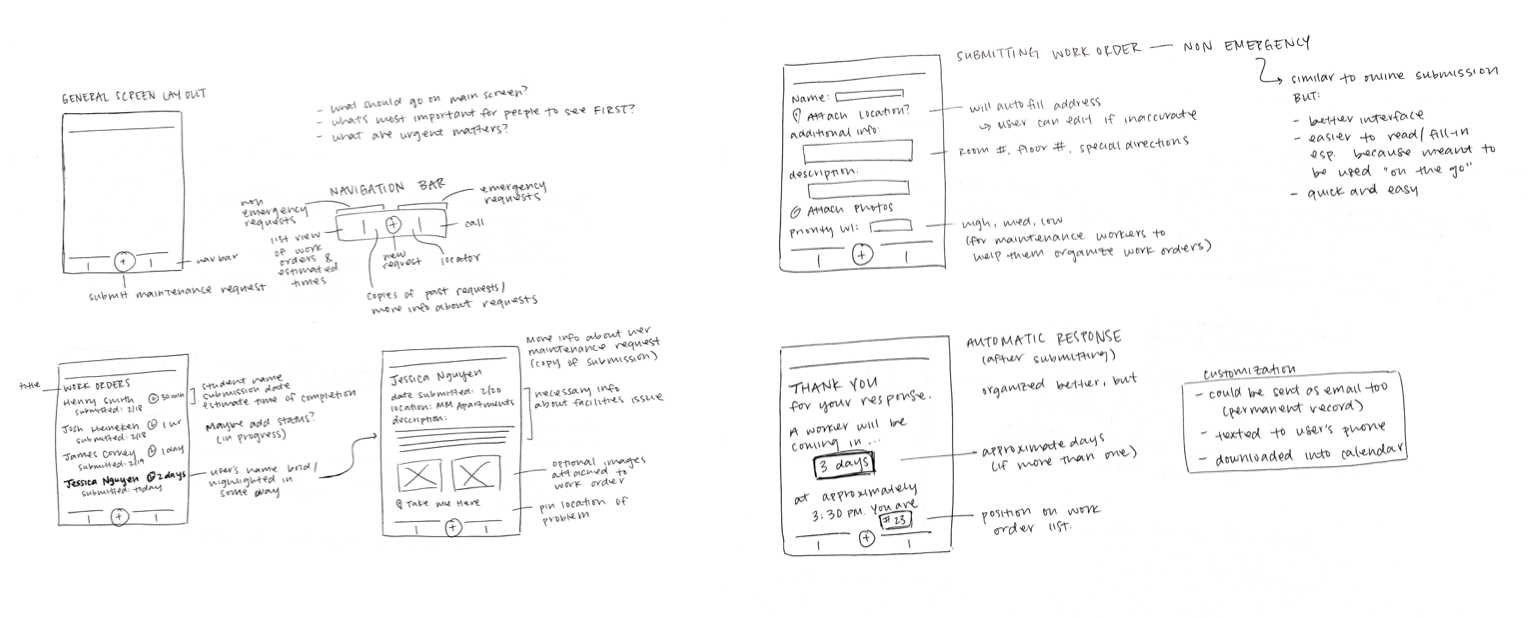 GENERAL SCREEN LAYOUT
- what should go on main screen?
- whats most important for people to see FIRST?
- what are urgent matters?
NAVIGATION BAR
non
emergency
requests
emergency
requests
list view
of work
orders &
estimated
times
+
new
request
call
locator
copies of past requests/
more info about requests
+
nav bar
submit maintenance request
title
WORK ORDERS
Henry Smith 30 min
submitted: 2/18
Josh Heineken 1 hr
submitted: 2/18
James Correy 1 day
submitted: 2/19
Jessica Nguyen 2 days
submitted: today
+
student name
submission date
estimate time of completion
Maybe add status?
(in progress)
user's name bold/
highlighted in
some way
Jessica Nguyen
date submitted: 2/20
location: MM Apartments
description:
Take me Here
+
More info about user
maintenance request
(copy of submission)
necessary info
about facilities issue
optional images
attached to
work order
pin location of
problem
SUBMITTING WORK ORDER — NON EMERGENCY
Name:
Attach Location?
additional info:
description:
Attach Photos
priority lvl:
+
will autofill address
↳ user can edit if inaccurate
Room #, floor #, special directions
high, med, low
(for maintenance workers to
help them organize work orders)
similar to online submission
BUT:
- better interface
- easier to read/fill-in
esp. because meant to
be used "on the go"
- quick and easy
THANK YOU
for your response.
A worker will be
coming in...
3 days
at approximately
3:30 PM. You are
#23
+
AUTOMATIC RESPONSE
(after submitting)
organized better, but
approximate days
(if more than one)
position on work
order list.
Customization
- could be sent as email too
(permanent record)
- texted to user's phone
- downloaded into calendar